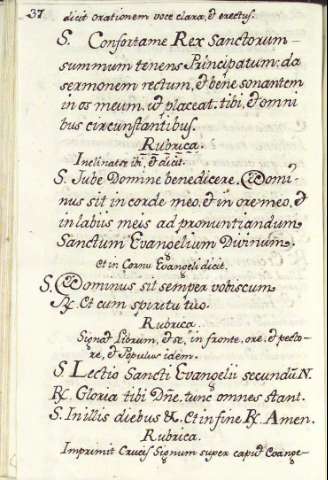 37
dicit orationem voce clara, & erectus.
S. Confortame Rex Sanctorum
summum tenens Principatum: da
sermonem rectum, & bene sonantem
in os meum, ut placeat tibi, & omni
bus circunstantibus.
Rubrica.
Inclinatur ibi, & dicit.
S. Jube Domine benedicere. Domi-
nus sit in corde meo, & in ore meo, &
in labiis meis ad pronuntiandum
Sanctum Evangelium Divinum.
Et in Cornu Evangelii dicit.
S. Dominus sit semper vobiscum
℟. Et cum spiritu tuo.
Rubrica.
Signat Librum, & se, in fronte, ore, & pecto-
re, & Populus idem.
S. Lectio Sancti Evangelii secundũ N.
℟. Gloria tibi Dñe, tunc omnes stant.
S. In illis diebus &. Et in fine ℟. Amen.
Rubrica.
Imprimit Crucis Signum super caput Evange-